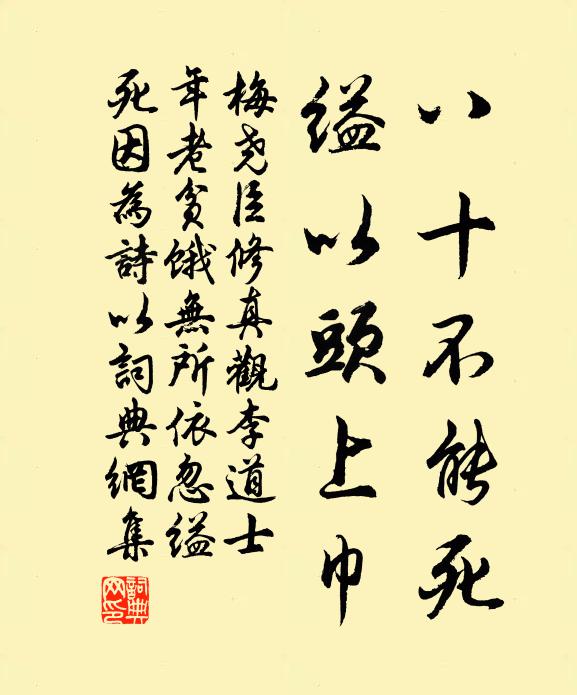 八十不能死
縊以頭上巾
梅堯臣修真觀李道士
年老貧餓無所依忽縊
死因為詩以詞典網集
詞典
网印